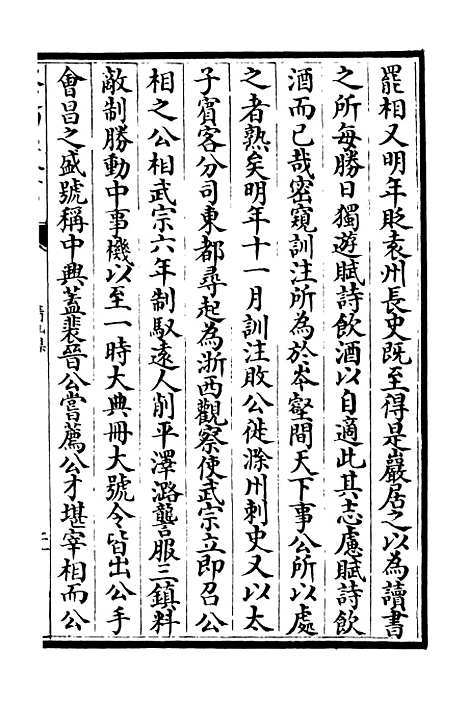 罷相又明年貶袁州長史既至得是巖居之以為讀書
之所每勝日獨遊賦詩飲酒以自適此其志慮賦詩飲
酒而已哉密窺訓注所為於岑壑間天下事公所以處
之者熟矣明年十一月訓注敗公徙滁州刺史又以太
子賓客分司東都尋起為浙西觀察使武宗立即召公
相之公相武宗六年制馭遠人削平澤潞讋服三鎮料
敵制勝動中事機以至一時大典冊大號令皆出公手
會昌之盛號稱中興蓋裴晉公嘗薦公才堪宰相而公